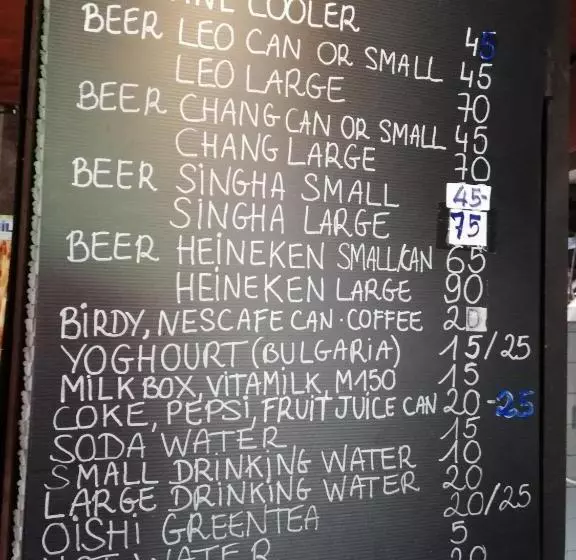 COOLER 45
BEER LEO CAN OR SMALL 45
LEO LARGE 70
BEER CHANG CAN OR SMALL 45
CHANG LARGE 70
BEER SINGHA SMALL 45-
SINGHA LARGE 75
BEER HEINEKEN SMALL/CAN 65
HEINEKEN LARGE 90
BIRDY, NESCAFE CAN·COFFEE 20
YOGHOURT (BULGARIA) 15/25
MILK BOX, VITAMILK, M150 15
COKE, PEPSI, FRUIT JUICE CAN 20-25
SODA WATER 15
SMALL DRINKING WATER 10
LARGE DRINKING WATER 20
OISHI GREENTEA 20/25
WATER 5